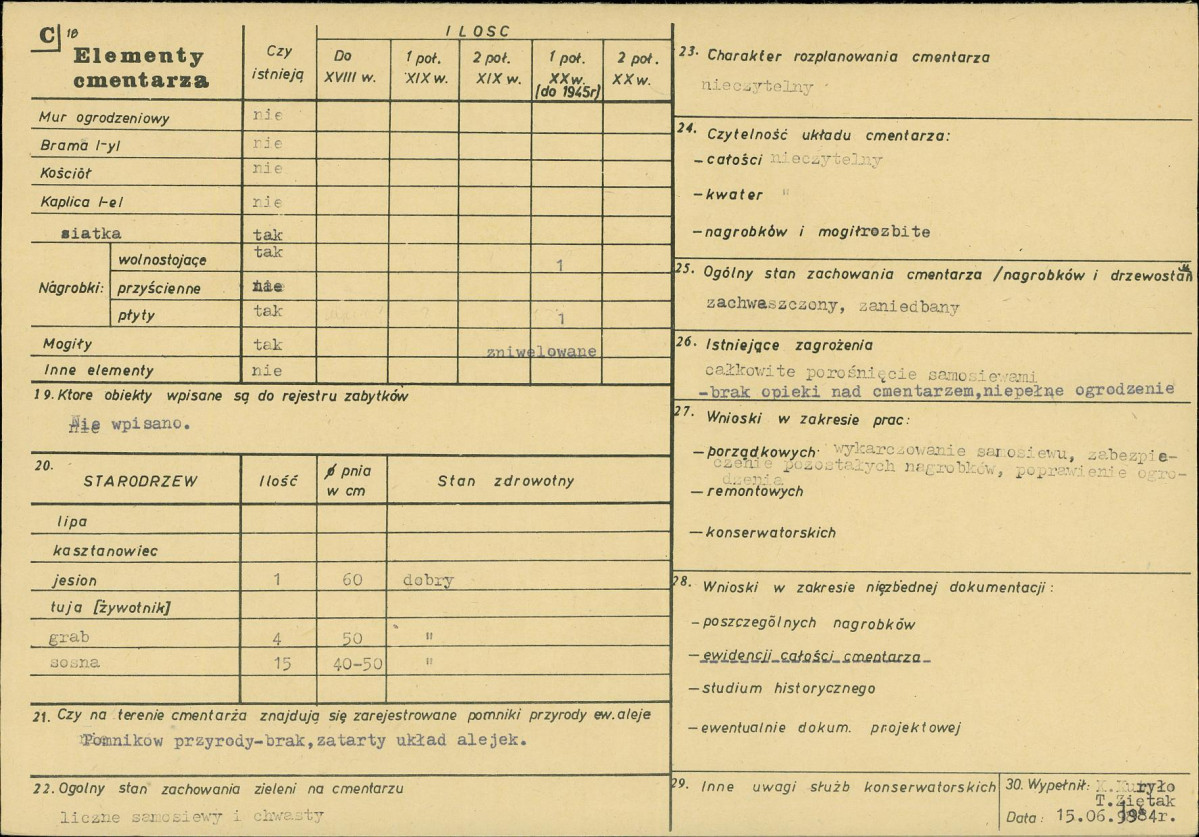 C 18
Elementy cmentarza
Czy istnieją
ILOSC
Do XVIII w.
1 poł. XIX w.
2 poł. XIX w.
1 poł. XX w. (do 1945r)
2 poł. XX w.
Mur ogrodzeniowy nie
Brama I-yI nie
Kościół nie
Kaplica I-eI nie
siatka tak
Nagrobki: wolnostojące tak 1
przyścienne nie
płyty tak 1
Mogiły tak zniwelowane
Inne elementy nie
19. Ktore obiekty wpisane są do rejestru zabytków
Nie wpisano.
20.
STARODRZEW Ilość ø pnia w cm Stan zdrowotny
lipa
kasztanowiec
jesion 1 60 dobry
tuja [żywotnik]
grab 4 50 "
sosna 15 40-50 "
21. Czy na terenie cmentarża znajdują się zarejestrowane pomniki przyrody ew. aleje
Pomników przyrody-brak, zatarty układ alejek.
22. Ogolny stan zachowania zieleni na cmentarzu
liczne samosiewy i chwasty
23. Charakter rozplanowania cmentarza
nieczytelny
24. Czytelność układu cmentarza:
- całości nieczytelny
- kwater "
- nagrobków i mogił rozbite
25. Ogólny stan zachowania cmentarza /nagrobków i drzewostan
zachwaszczony, zaniedbany
26. Istniejące zagrożenia
całkowite porośnięcie samosiewami
-brak opieki nad cmentarzem, niepełne ogrodzenie
27. Wnioski w zakresie prac:
- porządkowych wykarczowanie samosiewu, zabezpie-
czenie pozostałych nagrobków, poprawienie ogro-
dzenia
- remontowych
- konserwatorskich
28. Wnioski w zakresie nięzbednej dokumentacji:
- poszczególnych nagrobków
- ewidencji całości cmentarza
- studium historycznego
- ewentualnie dokum. projektowej
29. Inne uwagi służb konserwatorskich
30. Wypełnił: K. Kuryło
T. Ziętak
Data: 15.06.1984r.